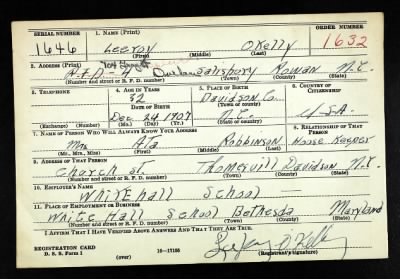 SERIAL NUMBER 1. NAME (Print) ORDER NUMBER
1646 Leeroy OKelly 1632
(First) (Middle) (Last)
2. ADDRESS (Print)
R.F.D-4 Durham Salisbury Rowan N.C.
(Number and street or R. F. D. number) (Town) (County) (State)
3. TELEPHONE 4. AGE IN YEARS 5. PLACE OF BIRTH 6. COUNTRY OF CITIZENSHIP
32 Davidson Co.
DATE OF BIRTH (Town or county)
Dec 24 1907 N.C. U.S.A.
(Exchange) (Number) (Mo.) (Day) (Yr.) (State or country)
7. NAME OF PERSON WHO WILL ALWAYS KNOW YOUR ADDRESS 8. RELATIONSHIP OF THAT PERSON
Mrs Ala Robbinson House Keeper
(Mr., Mrs., Miss) (First) (Middle) (Last)
9. ADDRESS OF THAT PERSON
Church st Thomasvill Davidson N.C.
(Number and street or R. F. D. number) (Town) (County) (State)
10. EMPLOYER'S NAME
White hall School
11. PLACE OF EMPLOYMENT OR BUSINESS
White Hall School Bethesda Maryland
(Number and street or R. F. D. number) (Town) (County) (State)
I AFFIRM THAT I HAVE VERIFIED ABOVE ANSWERS AND THAT THEY ARE TRUE.
REGISTRATION CARD
D. S. S. Form 1 16—17105
(over) (Registrant's signature)
LeeRoy O'Kelly